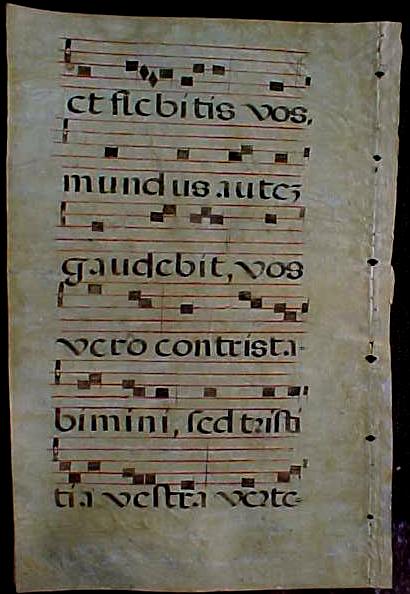 et flebitis vos,
mundus autez
gaudebit, vos
vero contrista-
bimini, sed tristi
tia vestra verte-